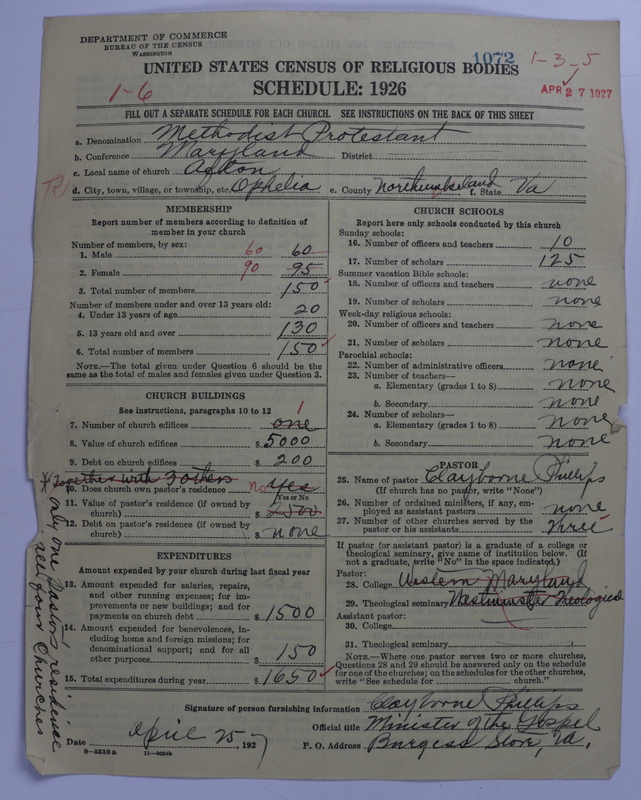 DEPARTMENT OF COMMERCE
BUREAU OF THE CENSUS
WASHINGTON
1072
1-3-5
UNITED STATES CENSUS OF RELIGIOUS BODIES
1-6
SCHEDULE: 1926
APR 27 1927
FILL OUT A SEPARATE SCHEDULE FOR EACH CHURCH. SEE INSTRUCTIONS ON THE BACK OF THIS SHEET
a. Denomination Methodist Protestant
b. Conference Maryland District
c. Local name of church Afton
d. City, town, village, or township, etc. Ophelia e. County Northumberland f. State Va
MEMBERSHIP
Report number of members according to definition of
member in your church
Number of members, by sex:
1. Male 60 60
2. Female 90 95
3. Total number of members 150
Number of members under and over 13 years old:
4. Under 13 years of age 20
5. 13 years old and over 130
6. Total number of members 150
NOTE.—The total given under Question 6 should be the
same as the total of males and females given under Question 3.
CHURCH BUILDINGS
See instructions, paragraphs 10 to 12
1
7. Number of church edifices one
8. Value of church edifices $ 5000
9. Debt on church edifices $ 200
Together with 3 others
10. Does church own pastor's residence no yes
Yes or No
11. Value of pastor's residence (if owned by
church) $ 2500
12. Debt on pastor's residence (if owned by
church) $ none
only one Pastor's residence
all four Churches
EXPENDITURES
Amount expended by your church during last fiscal year
13. Amount expended for salaries, repairs,
and other running expenses; for im-
provements or new buildings; and for
payments on church debt $ 1500
14. Amount expended for benevolences, in-
cluding home and foreign missions; for
denominational support; and for all
other purposes $ 150
15. Total expenditures during year $ 1650
CHURCH SCHOOLS
Report here only schools conducted by this church
Sunday schools:
16. Number of officers and teachers 10
17. Number of scholars 125
Summer vacation Bible schools:
18. Number of officers and teachers none
19. Number of scholars none
Week-day religious schools:
20. Number of officers and teachers none
21. Number of scholars none
Parochial schools:
22. Number of administrative officers none
23. Number of teachers—
a. Elementary (grades 1 to 8) none
b. Secondary none
24. Number of scholars—
a. Elementary (grades 1 to 8) none
b. Secondary none
PASTOR
25. Name of pastor Clayborne Phillips
(If church has no pastor, write "None")
26. Number of ordained ministers, if any, em-
ployed as assistant pastors none
27. Number of other churches served by the
pastor or his assistants three
If pastor (or assistant pastor) is a graduate of a college or
theological seminary, give name of institution below. (If
not a graduate, write "No" in the space indicated.)
Pastor:
28. College Western Maryland
29. Theological seminary Westminster Theological
Assistant pastor:
30. College
31. Theological seminary
NOTE.—Where one pastor serves two or more churches,
Questions 28 and 29 should be answered only on the schedule
for one of the churches; on the schedules for the other churches,
write "See schedule for church."
Signature of person furnishing information Clayborne Phillips
Official title Minister of the Gospel
Date April 25, 1927 P. O. Address Burgess Store, Va.
8—5518 a 11—9554b